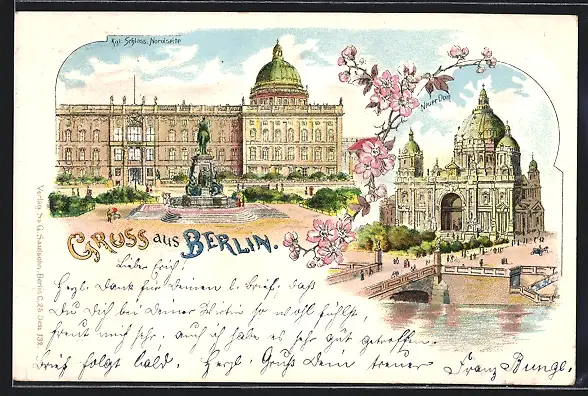 Kgl. Schloss, Nordseite
Neuer Dom
GRUSS aus BERLIN.
Lieber Erich!
Herzl. Dank für Deinen l. Brief, daß
Du Dich bei Deiner Wirtin so wohl fühlst,
freut mich sehr. Auch ich habe es sehr gut getroffen.
Brief folgt bald. Herzl. Gruß Dein treuer Franz Bunge.
Verlag S & G. Saulsohn, Berlin C. 25 Dess. 132.